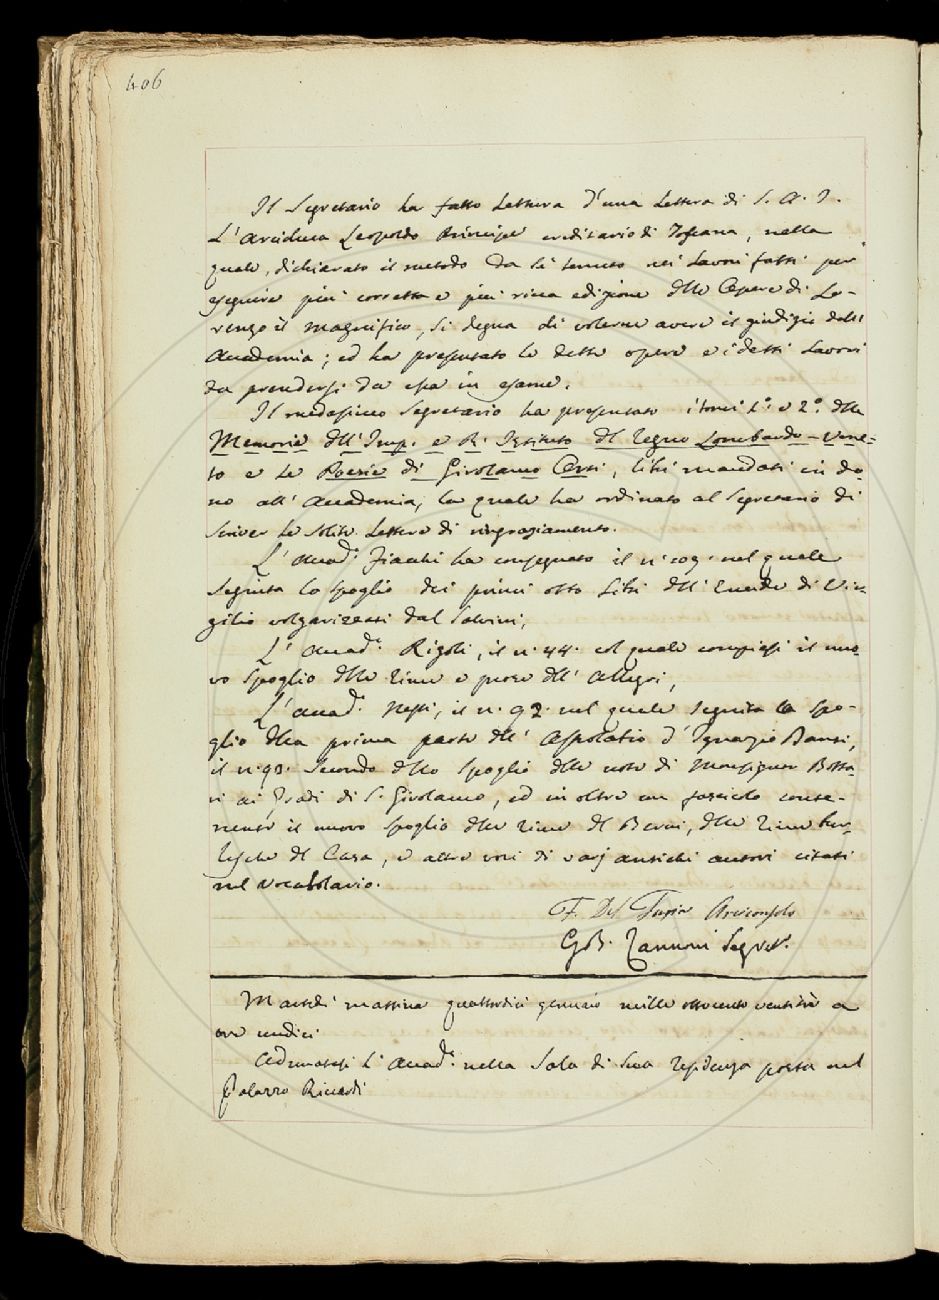 406
Il Segretario ha fatto lettura d'una lettera di S. A. I.
L'Arciduca Leopoldo Principe ereditario di Toscana, nella
quale, dichiarato il metodo da lui tenuto nei lavori fatti per
eseguire più corretta e più ricca edizione delle Opere di Lo-
renzo il magnifico, si degna di volerne avere il giudizio dell'
Accademia; ed ha presentato le dette opere e i detti lavori
da prendersi da essa in esame.
Il medesimo Segretario ha presentato i tomi 1.° e 2.° delle
Memorie dell'Imp. e R. Istituto del Regno Lombardo-Vene-
to e le Poesie di Girolamo , libri mandati in do-
no all'Accademia, la quale ha ordinato al Segretario di
scriver le solite lettere di ringraziamento.
L'Accad.° Fiacchi ha consegnato il n.° 109. nel quale
seguita lo spoglio dei primi otto libri dell'Eneide di Vir-
gilio volgarizzati dal Salvini,
L'Accad.° Rigoli, il n.° 44. col quale compiesi il nuo-
vo spoglio delle rime e prose dell'Allegri,
L'Accad.° Nesti, il n. 92. nel quale seguita lo spo-
glio della prima parte dell' d'Ignazio Danti,
il n.° 93. secondo dello spoglio delle note di Monsignor Botta-
ri ai Gradi di S. Girolamo, ed in oltre un fascicolo conte-
nente il nuovo spoglio delle rime del Berni, delle rime bur-
lesche del Casa, e altre voci di varj antichi autori citati
nel Vocabolario.
F. Del Furia Arciconsolo
G B. Zannoni Segret.
Martedì mattina quattordici gennaio mille ottocento ventitrè a
ore undici
Adunatasi l'Accad.° nella Sala di sua residenza posta nel
Palazzo Riccardi